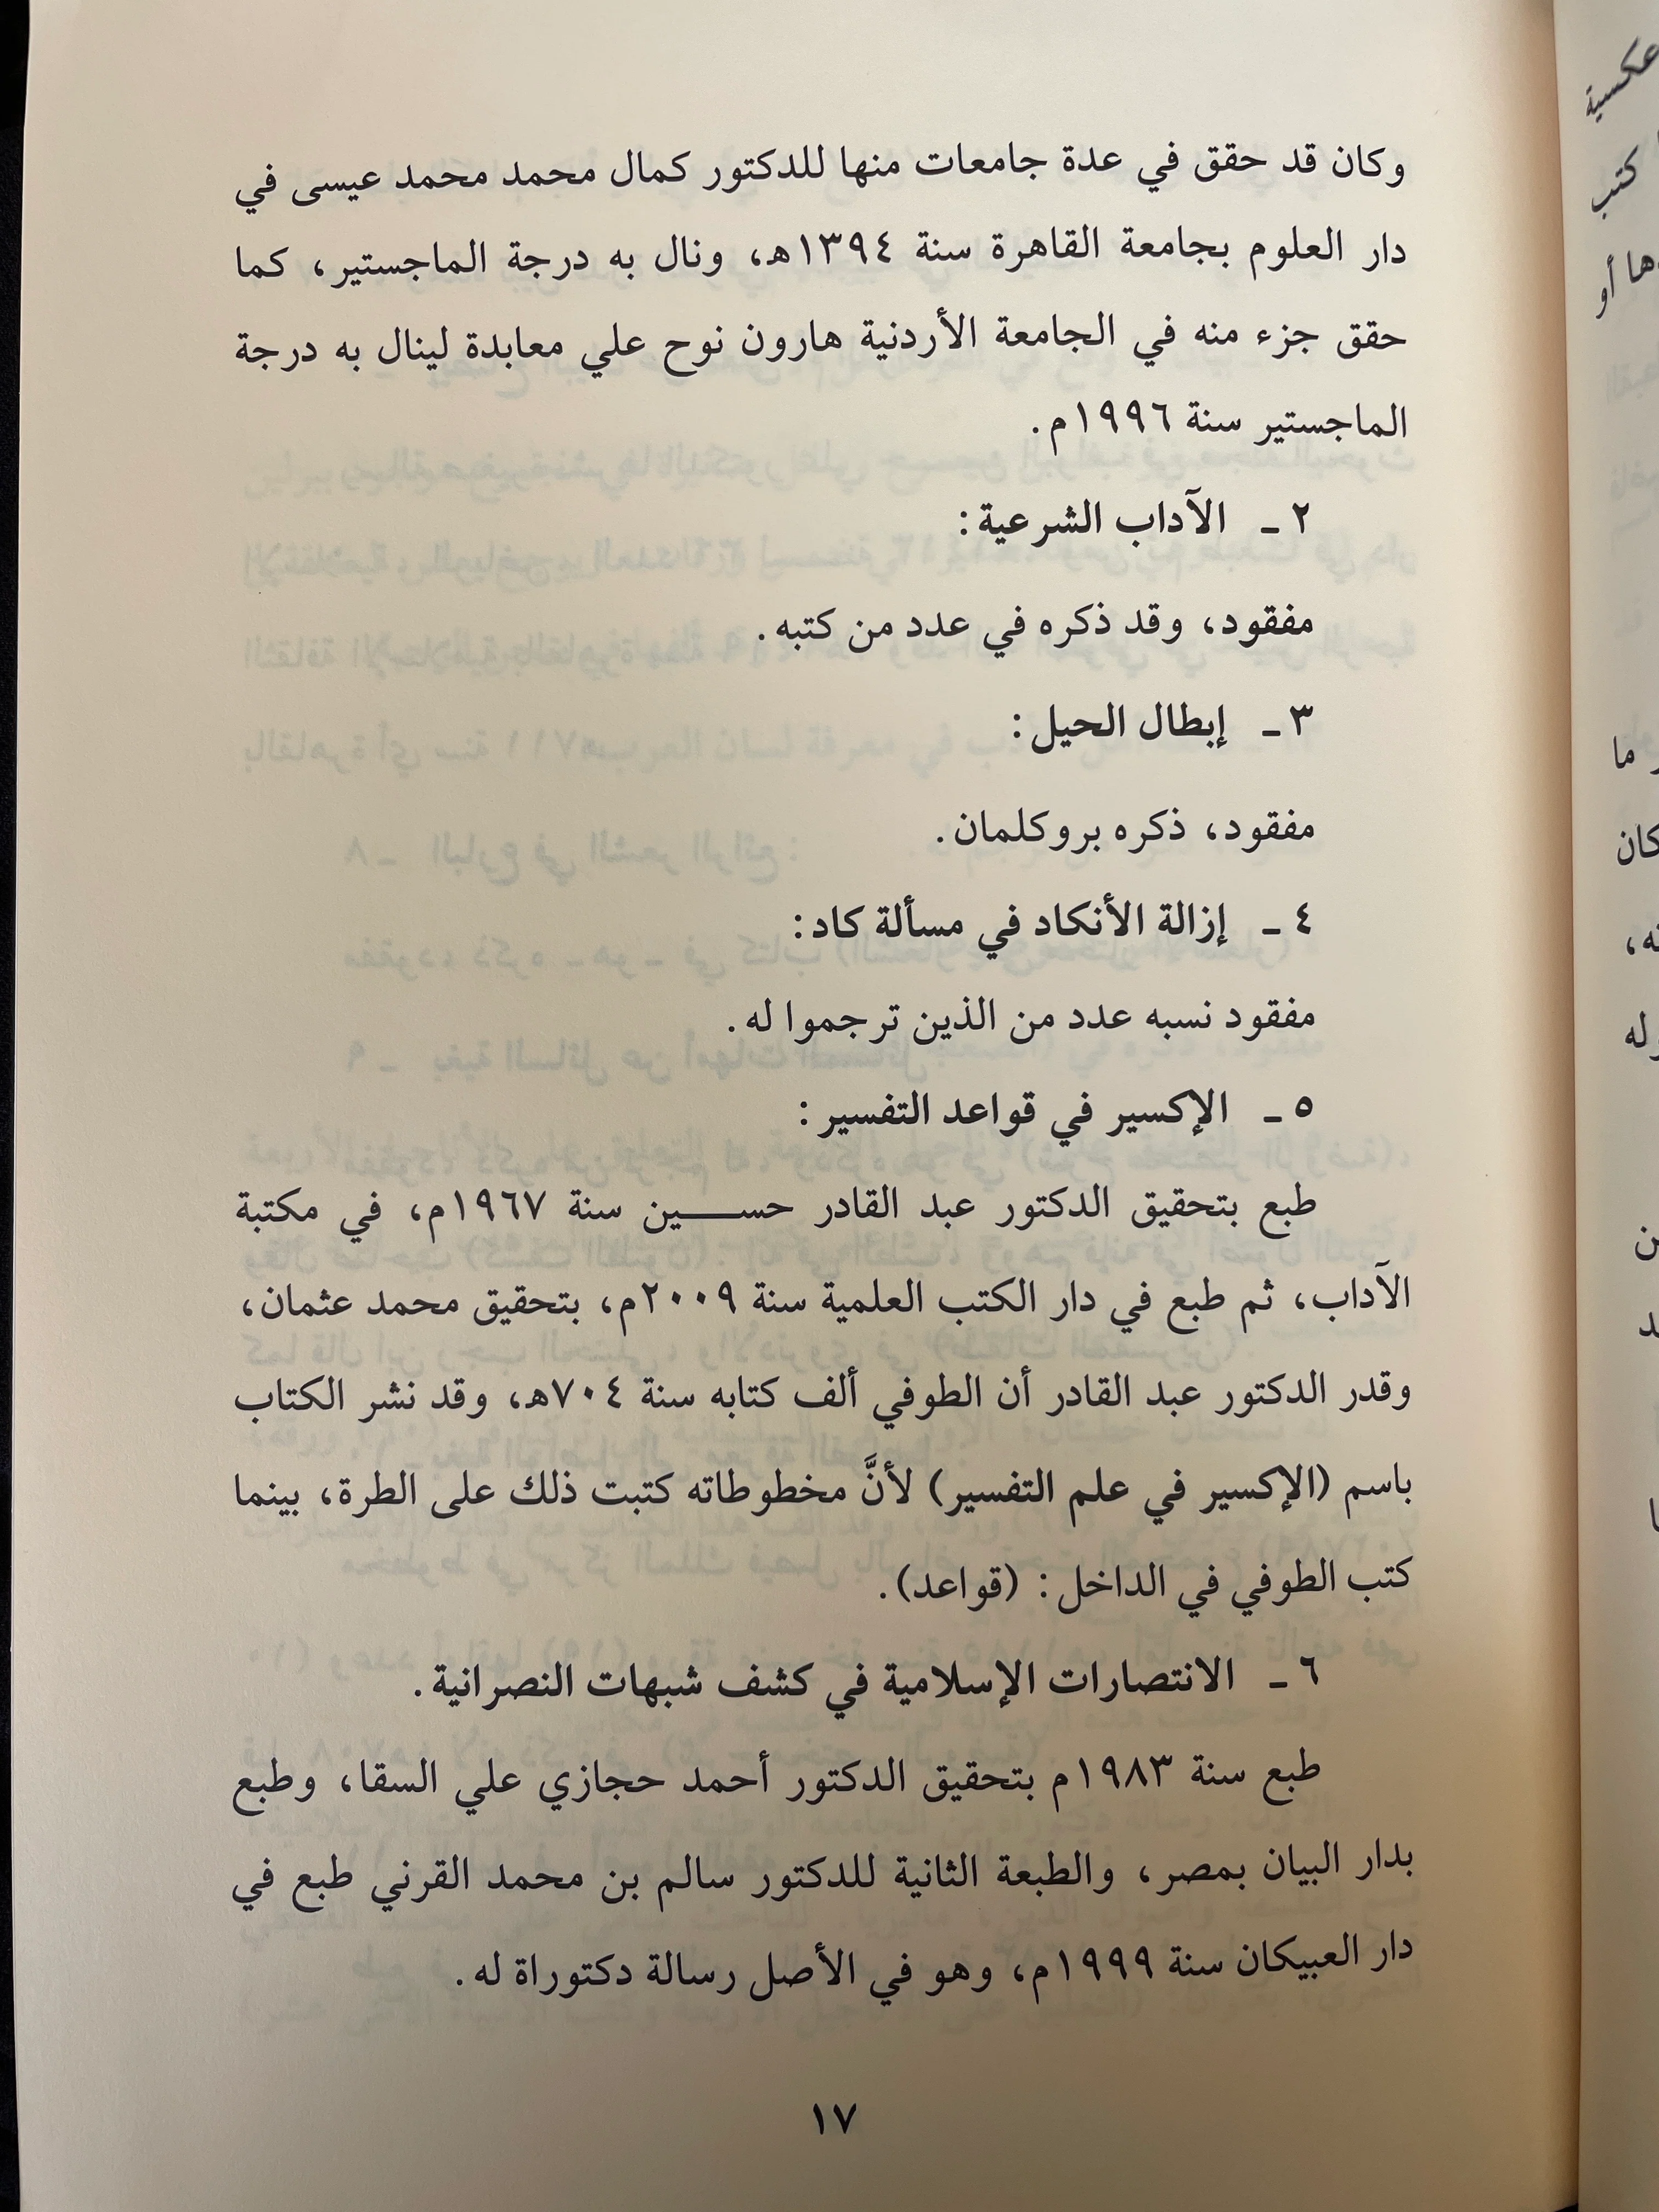 وكان قد حقق في عدة جامعات منها للدكتور كمال محمد محمد عيسى في
دار العلوم بجامعة القاهرة سنة ١٣٩٤هـ، ونال به درجة الماجستير، كما
حقق جزء منه في الجامعة الأردنية هارون نوح علي معابدة لينال به درجة
الماجستير سنة ١٩٩٦م.
٢ ـ الآداب الشرعية:
مفقود، وقد ذكره في عدد من كتبه.
٣ ـ إبطال الحيل:
مفقود، ذكره بروكلمان.
٤ ـ إزالة الأنكاد في مسألة كاد:
مفقود نسبه عدد من الذين ترجموا له.
٥ ـ الإكسير في قواعد التفسير:
طبع بتحقيق الدكتور عبد القادر حســـين سنة ١٩٦٧م، في مكتبة
الآداب، ثم طبع في دار الكتب العلمية سنة ٢٠٠٩م، بتحقيق محمد عثمان،
وقدر الدكتور عبد القادر أن الطوفي ألف كتابه سنة ٧٠٤هـ، وقد نشر الكتاب
باسم (الإكسير في علم التفسير) لأنَّ مخطوطاته كتبت ذلك على الطرة، بينما
كتب الطوفي في الداخل: (قواعد).
٦ ـ الانتصارات الإسلامية في كشف شبهات النصرانية.
طبع سنة ١٩٨٣م بتحقيق الدكتور أحمد حجازي علي السقا، وطبع
بدار البيان بمصر، والطبعة الثانية للدكتور سالم بن محمد القرني طبع في
دار العبيكان سنة ١٩٩٩م، وهو في الأصل رسالة دكتوراة له.
١٧
عكسية
كتب
أو
ما
كان